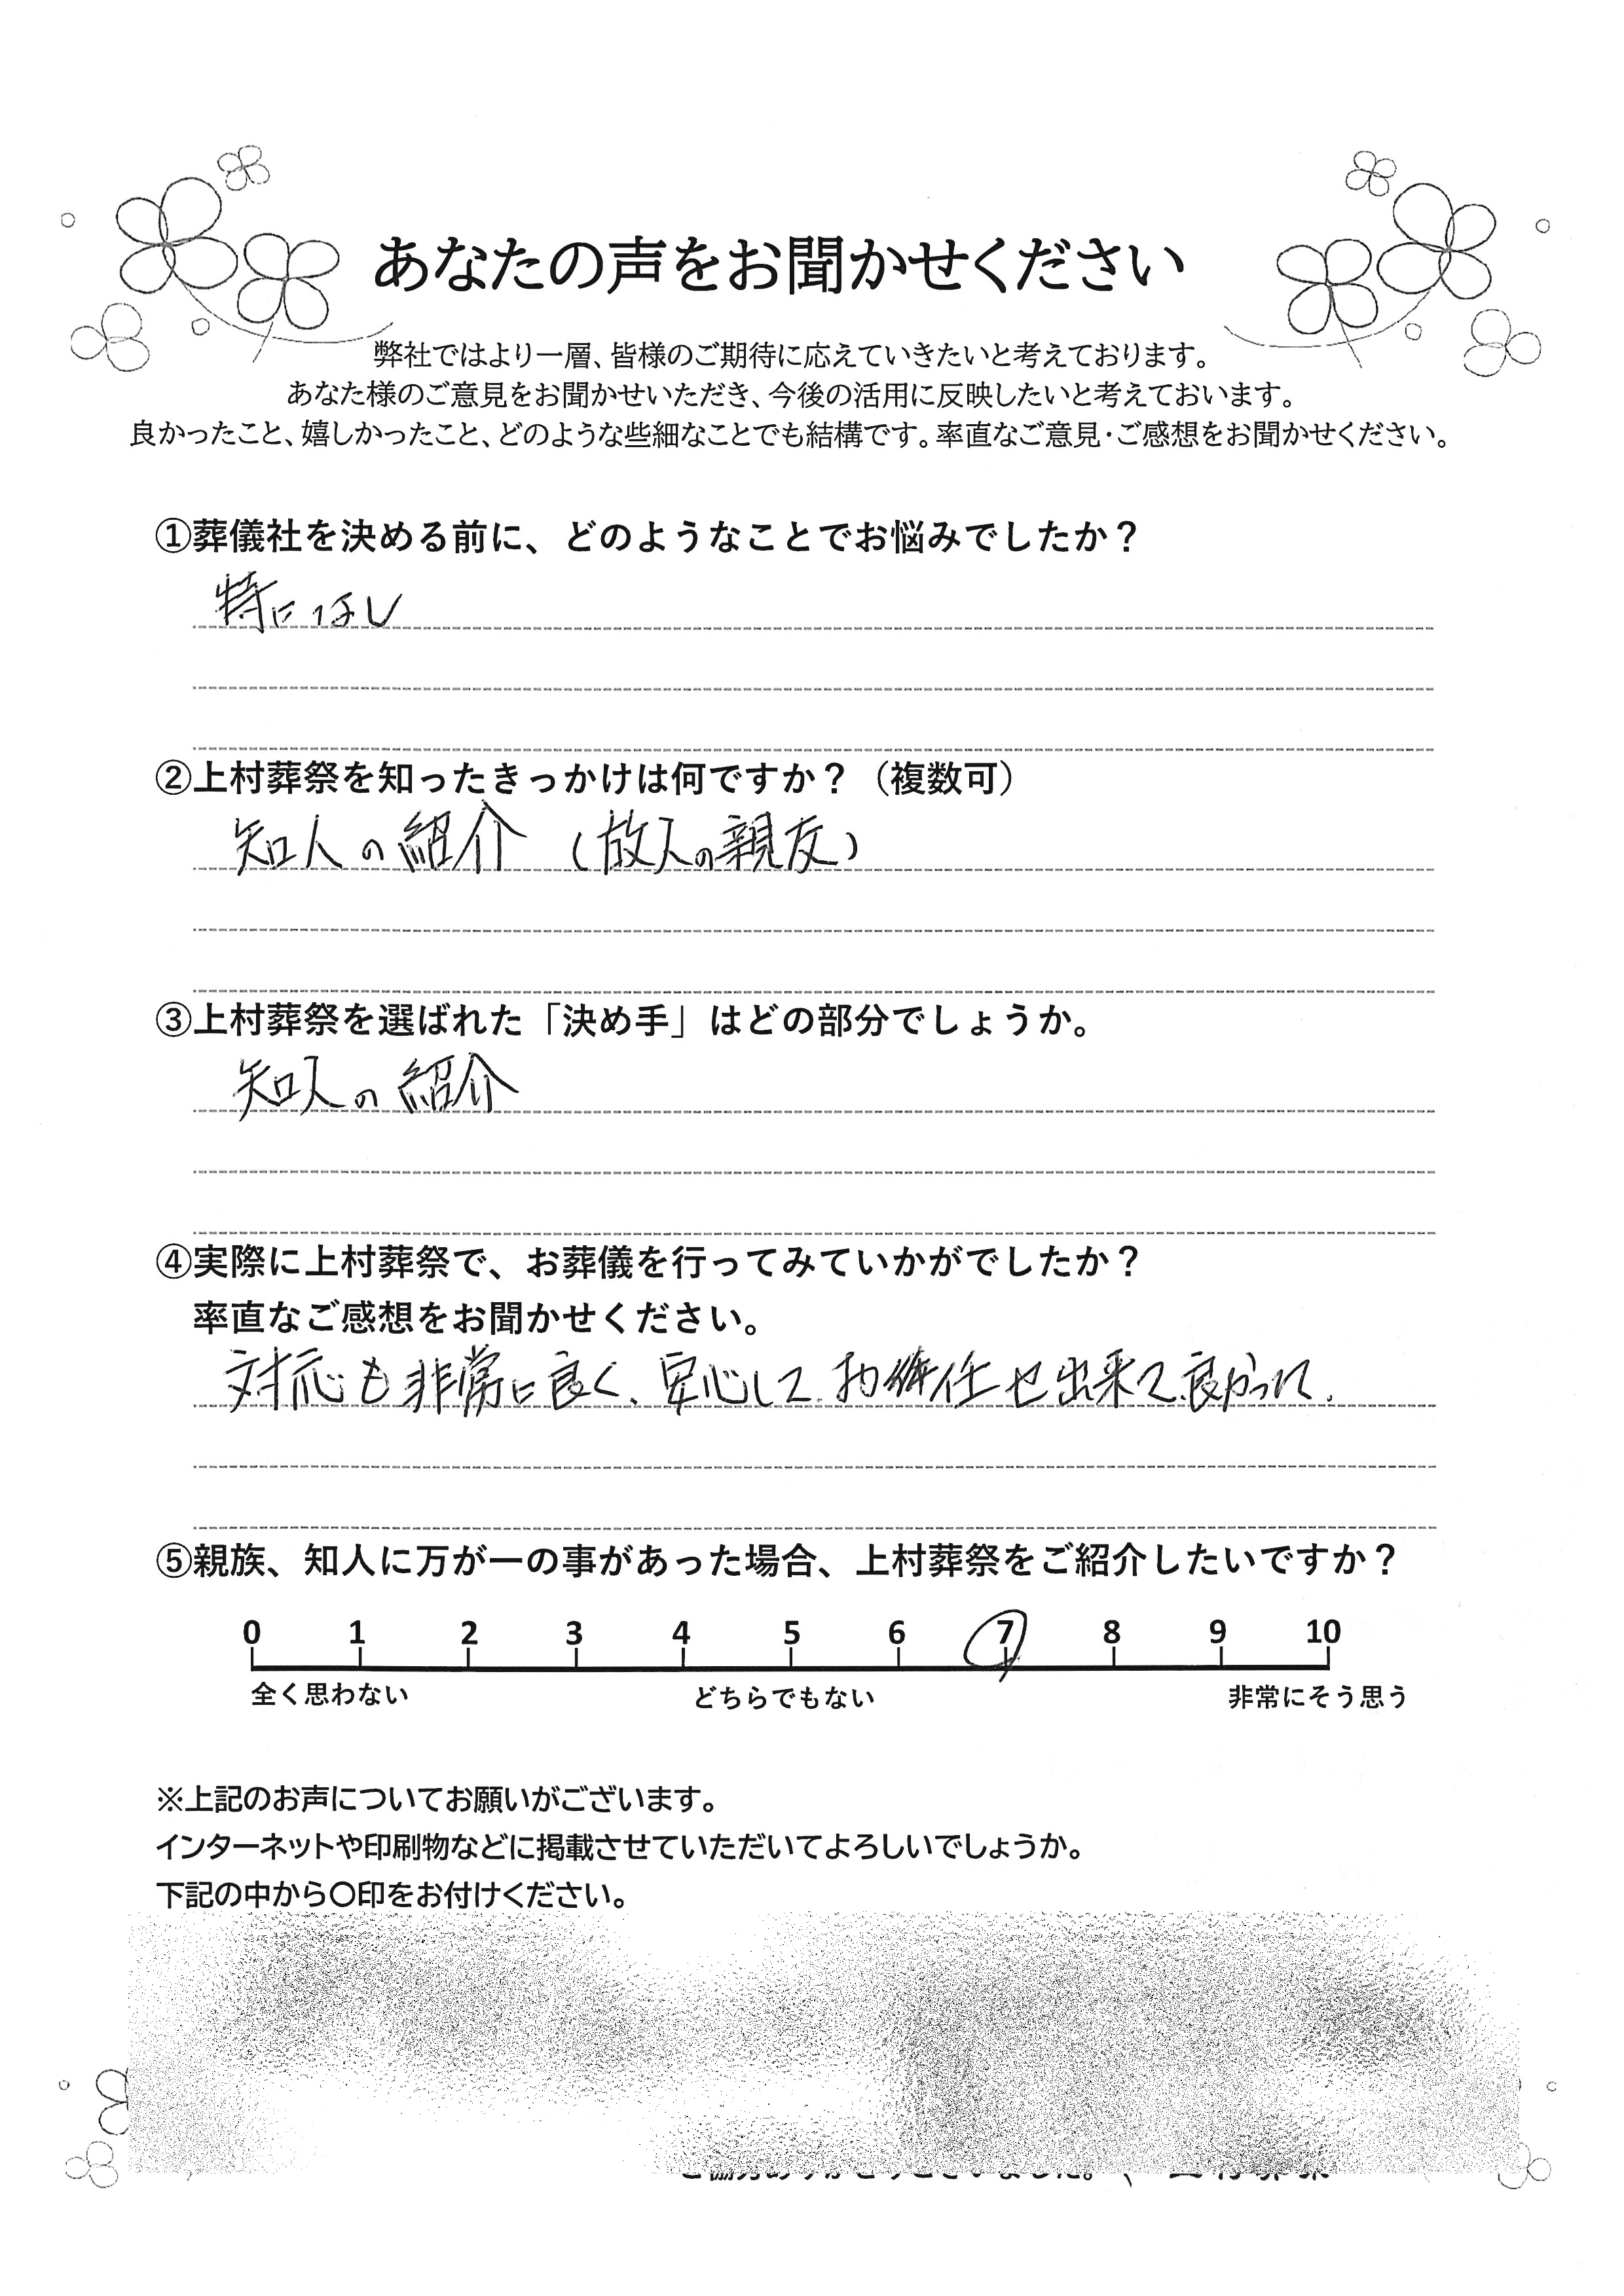 あなたの声をお聞かせください
弊社ではより一層、皆様のご期待に応えていきたいと考えております。
あなた様のご意見をお聞かせいただき、今後の活用に反映したいと考えておいます。
良かったこと、嬉しかったこと、どのような些細なことでも結構です。率直なご意見・ご感想をお聞かせください。
①葬儀社を決める前に、どのようなことでお悩みでしたか？
特になし
②上村葬祭を知ったきっかけは何ですか？（複数可）
知人の紹介（故人の親友）
③上村葬祭を選ばれた「決め手」はどの部分でしょうか。
知人の紹介
④実際に上村葬祭で、お葬儀を行ってみていかがでしたか？
率直なご感想をお聞かせください。
対応も非常に良く、安心してお任せ出来て良かった。
⑤親族、知人に万が一の事があった場合、上村葬祭をご紹介したいですか？
0 1 2 3 4 5 6 7 8 9 10
全く思わない どちらでもない 非常にそう思う
※上記のお声についてお願いがございます。
インターネットや印刷物などに掲載させていただいてよろしいでしょうか。
下記の中から〇印をお付けください。